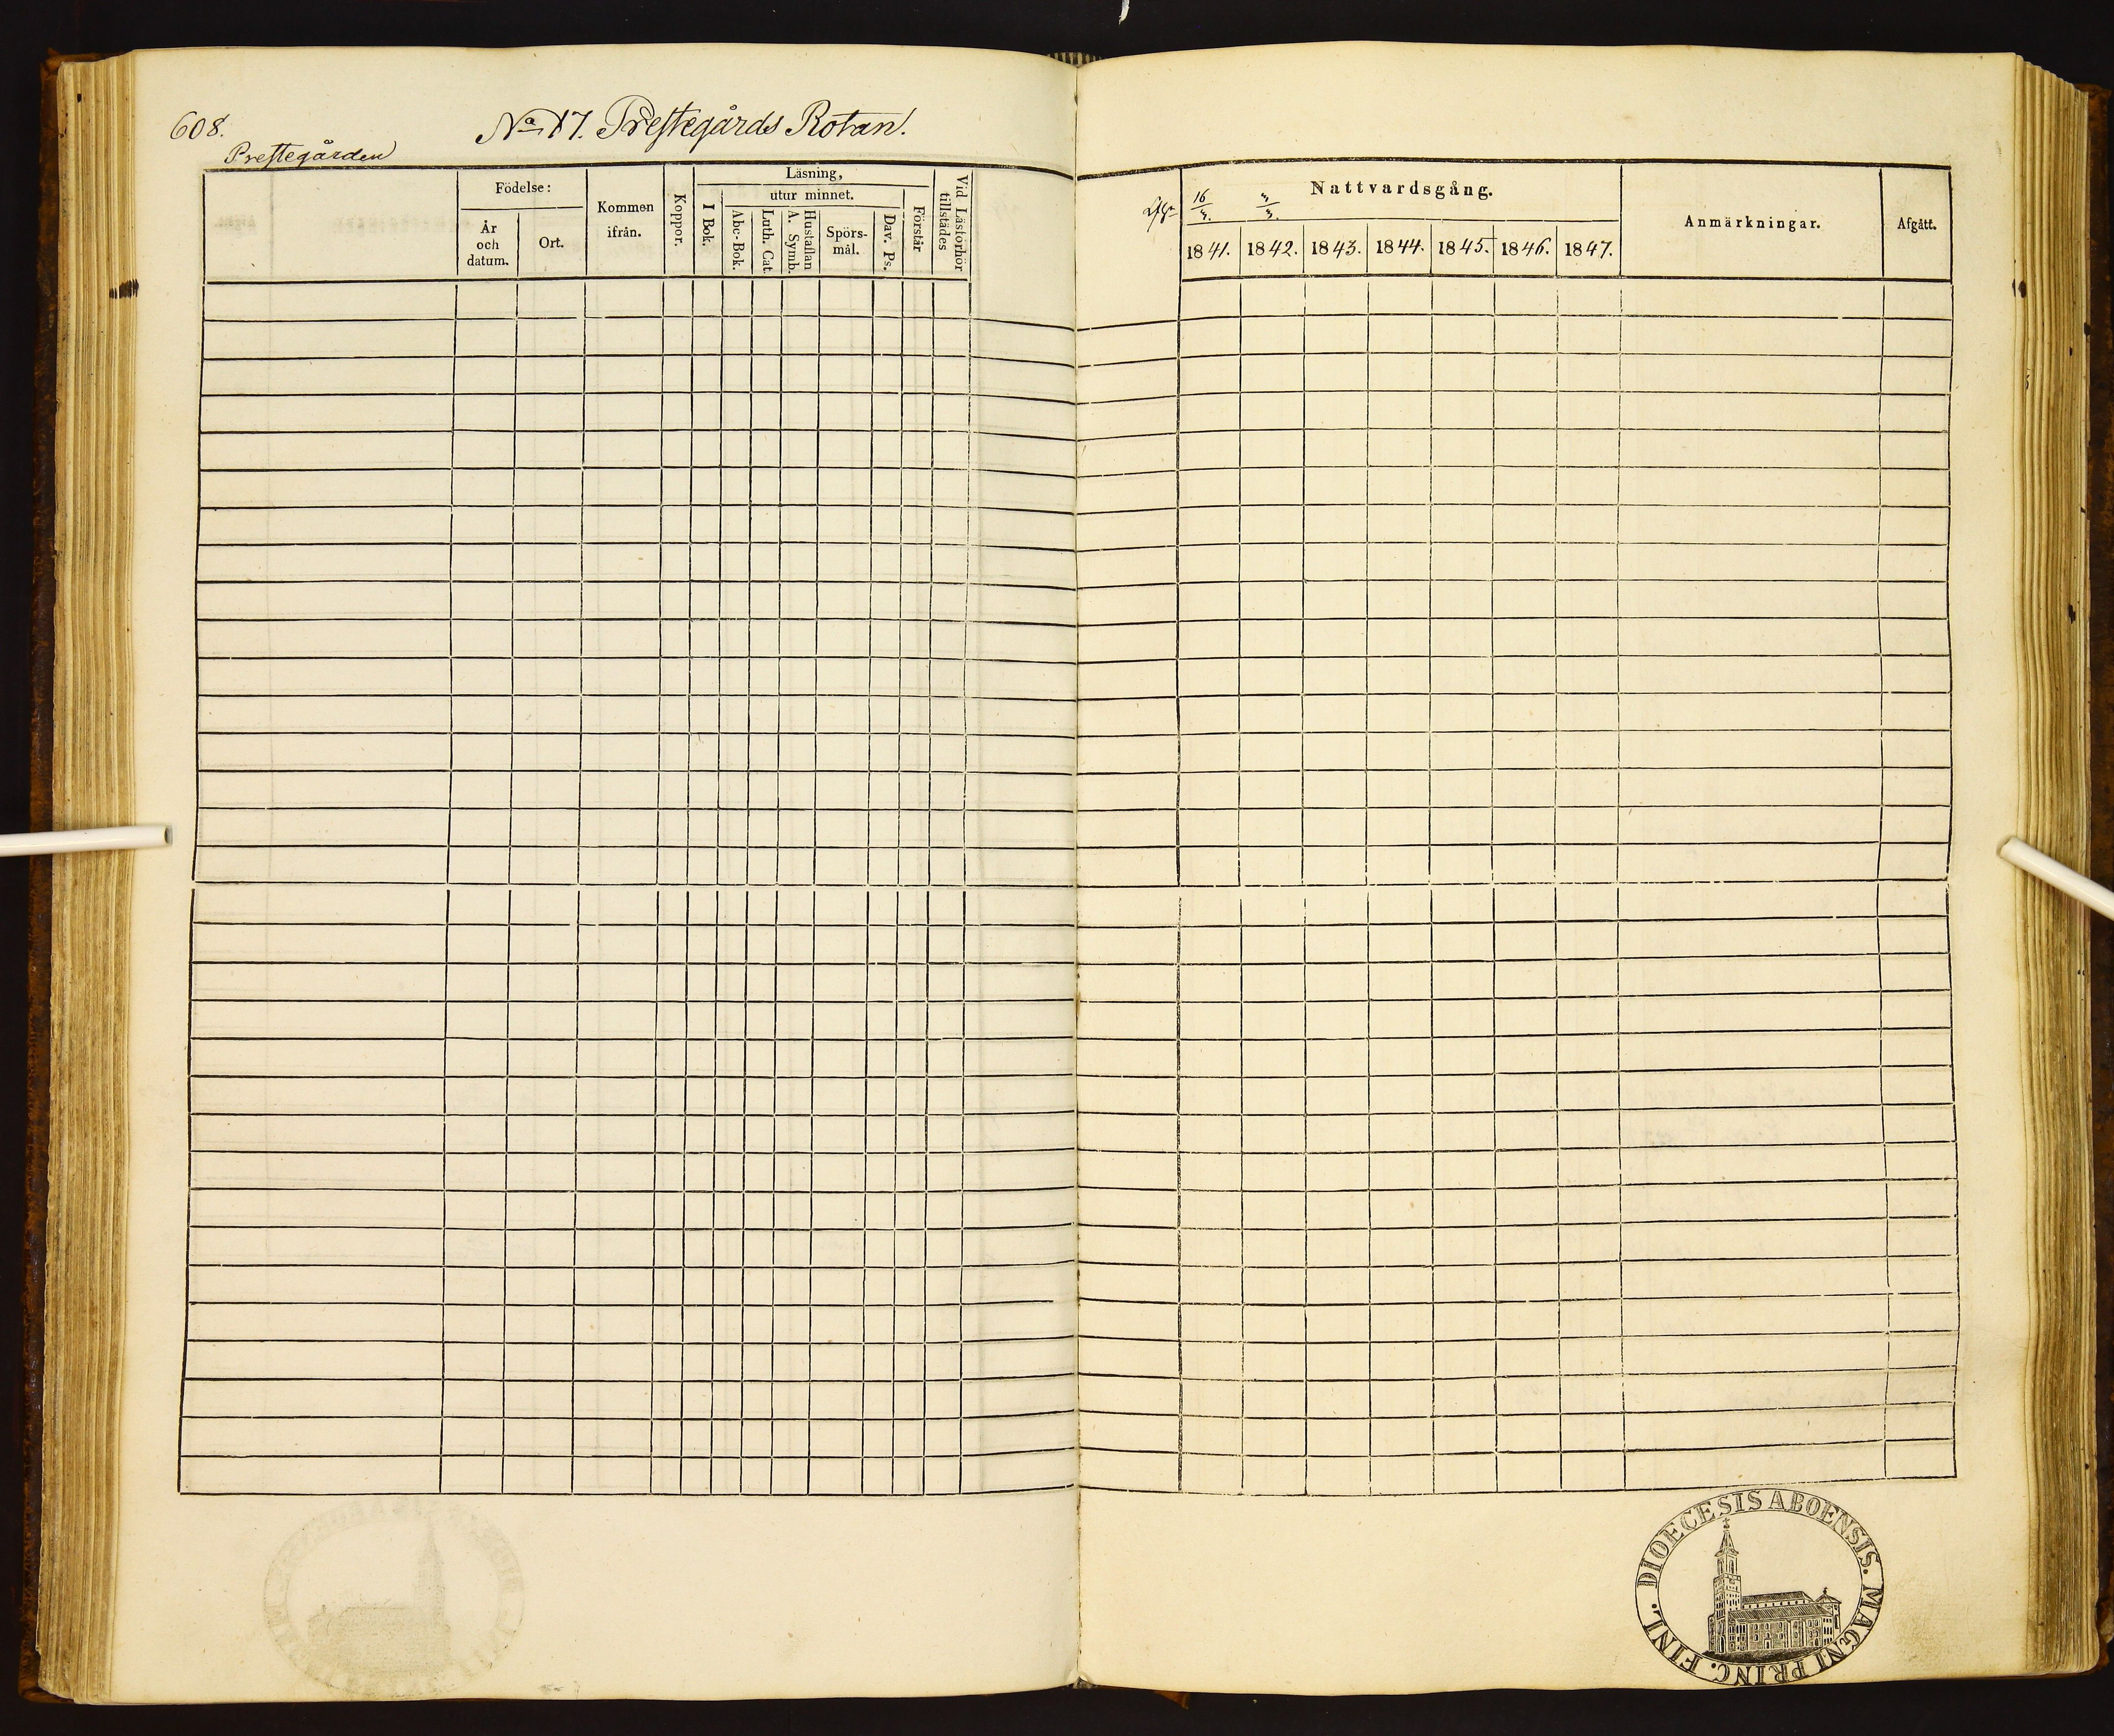 608.
No 17. Prestegårds Rotan.
Prestegården
Födelse:
År och datum.
Ort.
Kommen ifrån.
Koppor.
Läsning,
I Bok.
utur minnet.
Abc-Bok.
Luth. Cat.
Hustaflan A. Symb.
Spörs-mål.
Dav. Ps.
Förstår
Vid Läsförhör tillstädes
16/3.
3/3.
Nattvardsgång.
1841. 1842. 1843. 1844. 1845. 1846. 1847.
Anmärkningar.
Afgått.
DIOECESIS ABOENSIS. MAGNI PRINC. FINL.